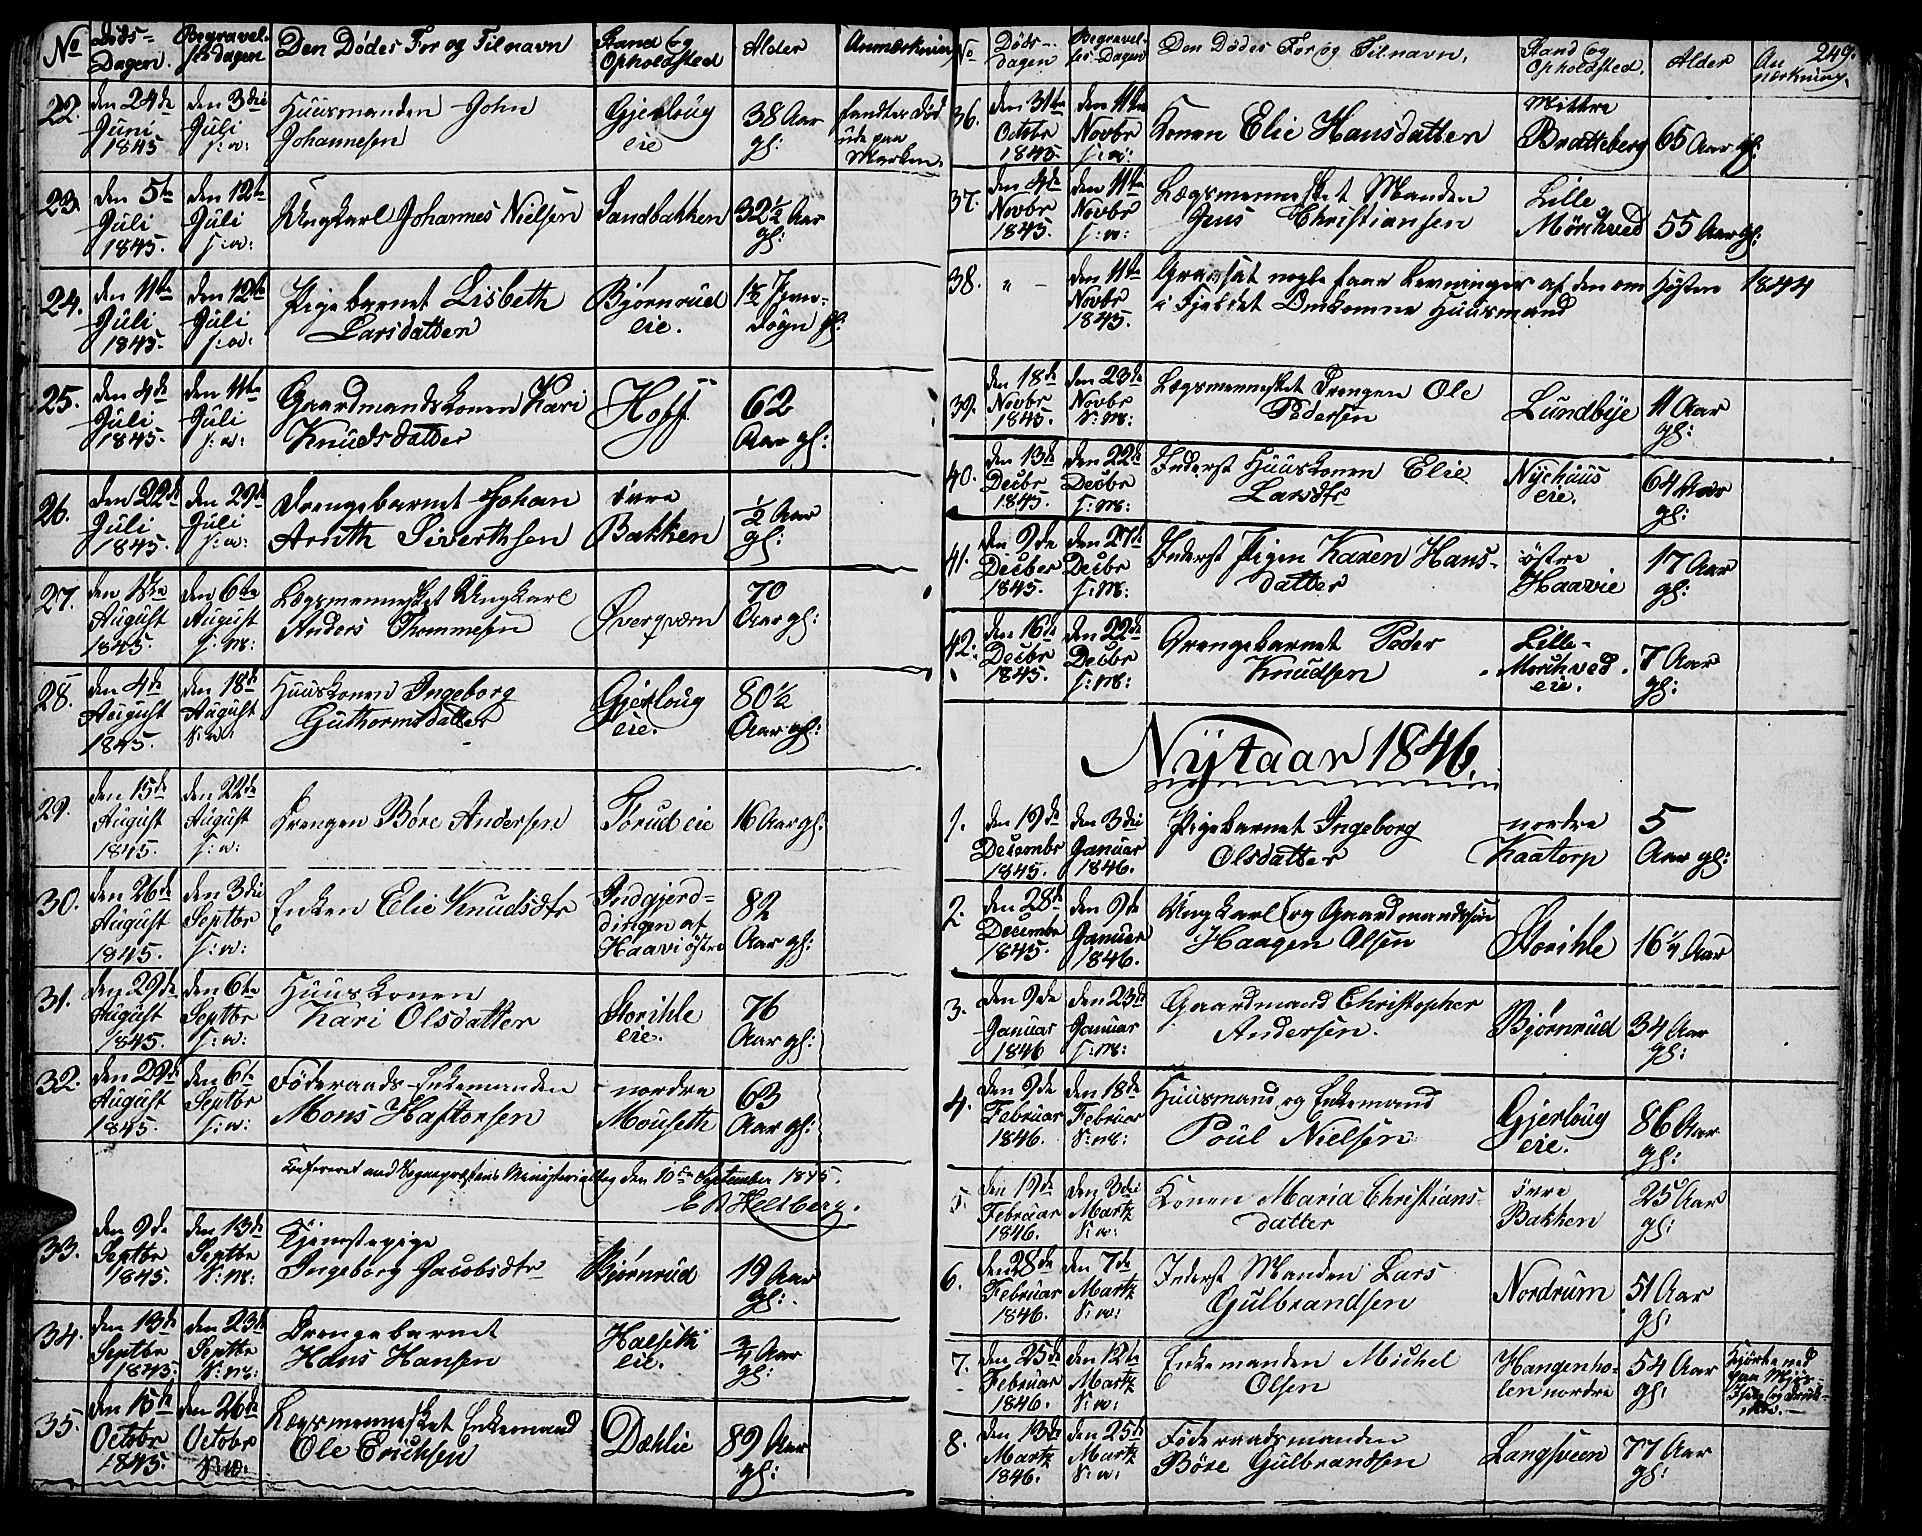 No Døds- Dagen. Begravel- sesdagen Den Dødes For og Tilnavn Stand og Opholdsted Alder Anmærkning
22. den 24de Juni 1845 den 3die Juli s: w: Huusmanden John Johannesen Gjerloug eie 38 Aar gl: fandtes død ude paa Marken.
23. den 5te Juli 1845. den 12te Juli s: w: Ungkarl Johannes Nielsen Sandbakken 32½ Aar gl:
24. den 11te Juli 1845. den 12te Juli s: w: Pigebarnet Lisbeth Larsdatter Bjørnrud eie. Døgn gl:
25. den 4de Juli 1845. den 11te Juli s: w: Gaardmandskonen Kari Knudsdatter Hoff 62 Aar gl:
26. den 22de Juli 1845. den 29de Juli s: w: Drengebarnet Johan Arnth Siverthsen övre Bakken ½ Aar gl:
27. den 1ste August 1845. den 6te August s: m: Lægsmennesket Ungkarl Anders Thommesen Øvergværn 70 Aar gl:
28. den 4de August 1845. den 18de August S: w: Huuskonen Ingeborg Guthormsdatter Gjerloug eie. 80½ Aar gl:
29. den 15de August 1845. den 22de August s: w: Drengen Böre Andersen Forud eie 16 Aar gl:
30. den 26de August 1845. den 3die Septbr s: w: Enken Elie Knudsdtr Indgjerd- dingen af Haavi östre 82 Aar gl:
31. den 29de August 1845. den 6te Septbr s: w: Huuskonen Kari Olsdatter Storihle eie. 76 Aar gl:
32. den 29de August 1845. den 6te Septbr s: w: Föderaads-Enkemanden Mons Haftorsen nordre Mouseth 63 Aar gl:
Confereret med Sognepræstens Ministerialbog den 10de September 1845.
E A Heltberg.
33. den 9de Septbr 1845. den 13de Septbr S: m: Tjenestepige Ingeborg Jacobsdtr Bjørnrud 19 Aar gl:
34. den 13de Septbr 1845. den 23de Septbr S: m: Drengebarnet Hans Hansen Halseth eie. ¾ Aar gl:
35. den 15de Octobr 1845. den 26de Octobr S: w: Lægsmennesket Enkemand Ole Erichsen Dæhlie 89 Aar gl:
249.
No Døds- dagen Begravel- ses-Dagen Den Dødes For og Tilnavn. Stand og Opholdsted. Alder An mærkning.
36. den 31te Octobr 1845. den 11te Novbr s: w: Konen Elie Hansdatter Mittre Bratteberg 65 Aar gl:
37. den 4de Novbr 1845. den 11te Novbr s: w: Lægsmennesket Manden Jens Christiansen Lille Mörchved 55 Aar gl:
38. " - den 11te Novbr 1845. Gravsat nogle faae Levninger af den om Høsten 1844 i Fjeldet Omkomne Huusmand
39. den 18de Novbr 1845. den 23de Novbr S: m: Lægsmennesket Drengen Ole Pedersen Lundbye 11 Aar gl:
40. den 13de Decbr 1845. den 22de Decbr s: m: Inderst Huuskonen Elie Larsdtr Nychuus eie. 64 Aar gl:
41. den 9de Decber 1845. den 27de Decbr s: m: Inderst Pigen Karen Hans- datter östre Haavie 17 Aar gl:
42. den 16de Decbr 1845. den 22de Decbr s: m: Drengebarnet Peder Knudsen Lille- Morchved eie. 7 Aar gl:
Nytaar 1846.
1. den 19de Decembr 1845. den 3die Januar 1846. Pigebarnet Ingeborg Olsdatter nordre Kaatorp 5 Aar gl:
2. den 28de Decembr 1845. den 9de Januar 1846. Ungkarl og Gaardmandssøn Haagen Olsen Storihle 16½ Aar
3. den 9de Januar 1846 den 23de Januar s: m: Gaardmand Christopher Andersen. Bjørnrud 34 Aar gl:
4. den 9de Februar 1846. den 18de Februar S: m: Huusmand og Enkemand Poul Nielsen Gjerloug eie. 86 Aar gl:
5. den 19de Februar 1846. den 3die Martz S: w: Konen Maria Christians- datter övre Bakken 25 Aar gl:
6. den 28de Februar 1846. den 7de Martz S: w: Inderst Manden Lars Gulbrandsen Nordrum 51 Aar gl:
7. den 25de Februar 1846. den 12te Martz S: w: Enkemanden Michel Olsen Hangenho- len nordre 54 Aar gl: Kjørte ned paa Mjös- Isen og druk-
8. den 13de Martz 1846. den 25de Martz S: w: Föderaadsmanden Böre Gulbrandsen Langsveen 77 Aar gl: